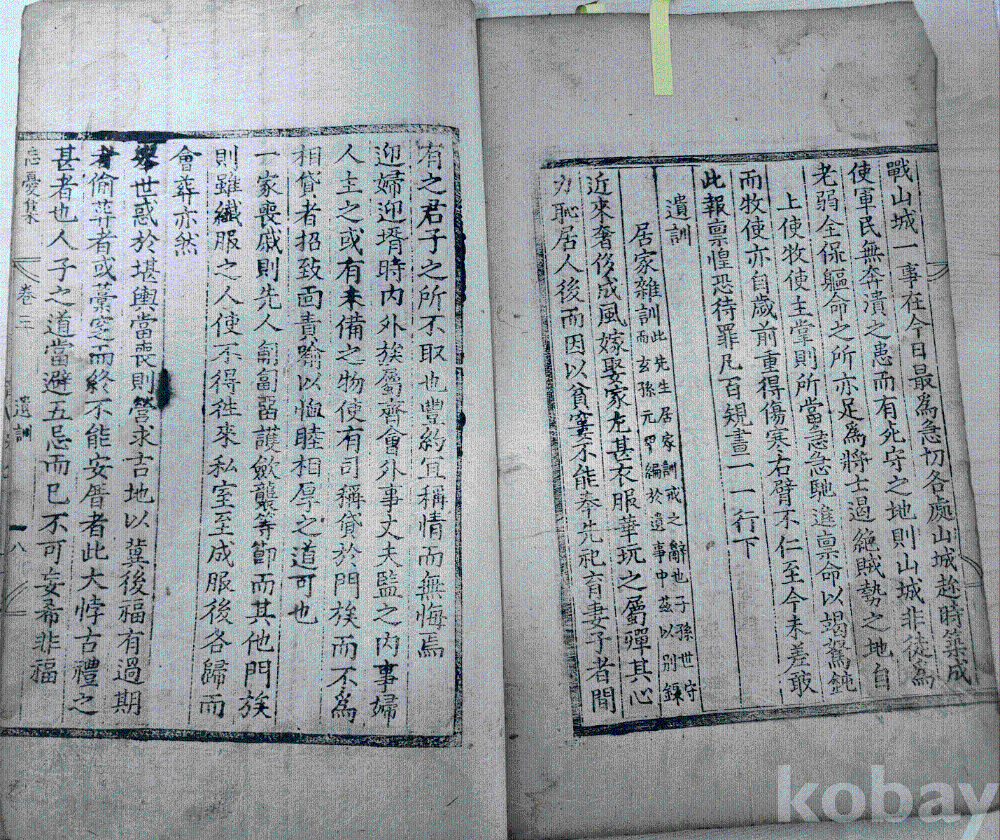 戰山城一事在今日最爲急切各處山城趁時築成
使軍民無奔潰之患而有死守之地則山城非徒爲
老弱全保軀命之所亦足爲將士遏絶賊勢之地自
上使牧使主掌則所當急急馳進稟命以竭駑鈍
而牧使亦自歲前重得傷寒右臂不仁至今未差敢
此報稟惶恐待罪凡百規畫一一行下
遺訓
居家雜訓此先生居家訓戒之辭也子孫世守
而玄孫元 編於遺事中玆以別錄
近來奢侈成風嫁娶家尤甚衣服華玩之屬彈其心
力恥居人後而因以貧窶不能奉先祀育妻子者間
有之君子之所不取也豐約宜稱情而無悔焉
迎婦迎壻時內外族屬齊會外事丈夫監之內事婦
人主之或有未備之物使有司稱貸於門族而不爲
相貸者招致面責喩以恤睦相厚之道可也
一家喪戚則先人匍匐畱護斂襲等節而其他門族
則雖纖服之人使不得徃來私室至成服後各歸而
會葬亦然
世惑於堪輿當喪則營求吉地以冀後福有過期
者偷葬者或藁窆而終不能安厝者此大悖古禮之
甚者也人子之道當避五忌而已不可妄希非福
忘憂集
卷三
遺訓
十八
kobay